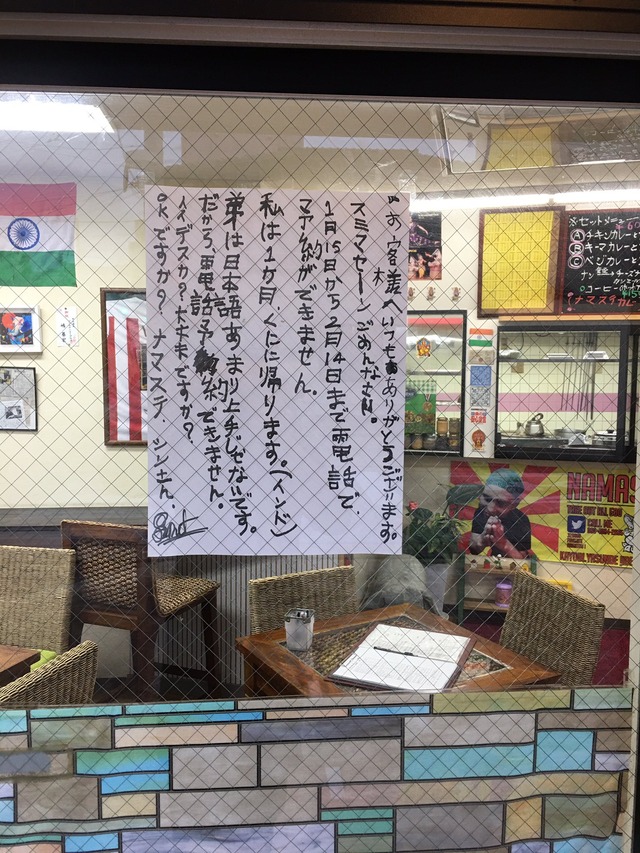 お客様へいつもありがとうございます。
スミマセーンごめんなさい。
1月15日から2月14日まで電話で、
予約ができません。
私は1ヶ月くにに帰ります。(インド)
弟は日本語あまり上手じゃないです。
だから、電話予約できません。
イイデスカ?大丈夫ですか?
OKですか?ナマステ.シンさん.
※セットメニュー
Ⓐチキンカレーと
Ⓑキーマカレーと
Ⓒベジカレーと
コーヒー
ナマステカレー
NAMAS
CALL ME